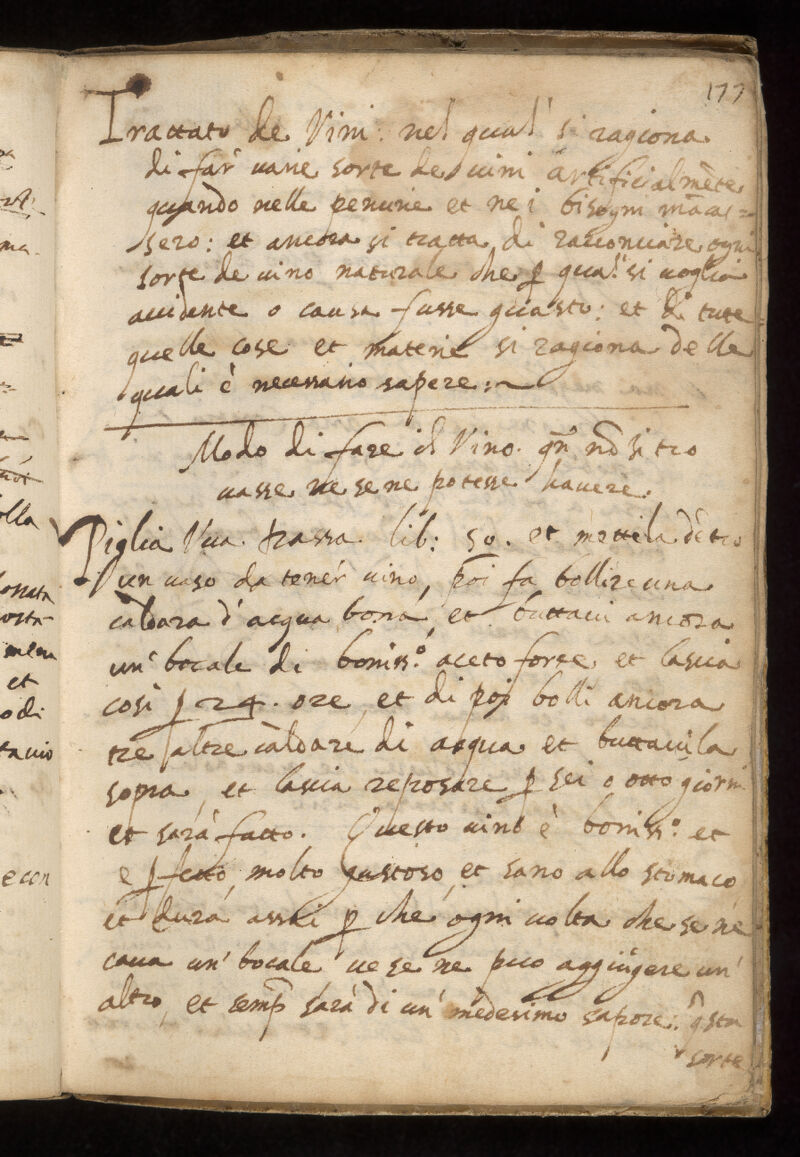 177
Trattato de Vini: nel qual' si ragiona
di far' varie sorte de vini artificialmēte
quando nelle penurie et nei bisogni mācas=
sero: et ancora si tratta di racconciare ogni
sorte de vino naturale che ꝑ qual' si voglia
accidente o causa fusse guasto: et di tute
quelle cose et materie si ragiona delle
quali è necessario sapere:~
Modo di fare il Vino. qn̄ nō si tro
vasse ne se ne potesse havere.
Piglia Vua. passa. lib: 50. et mettila dētro
un vaso da tener vino, poi fa bollire una
caldara d'acqua bona, et buttaui ancora
un' bocale di boniss.º aceto forte et lascia
cosi ꝑ 24. ore, et di poi bolli ancora
tre altre caldare di acqua et buttauila
sopra, et lascia reposare ꝑ sei o otto giorni
et sarà fatto. Questo vino è boniss.º et
e ꝑfetto, molto gustoso, et sano allo stomaco
et durà assai ꝑ che ogni volta che se ne
caua un' bocale ue se ne puo aggiūgere un'
altro, et semp̄ sarà di un' medesimo sapore: q̄sta
sorte
olla
et
o di
e con